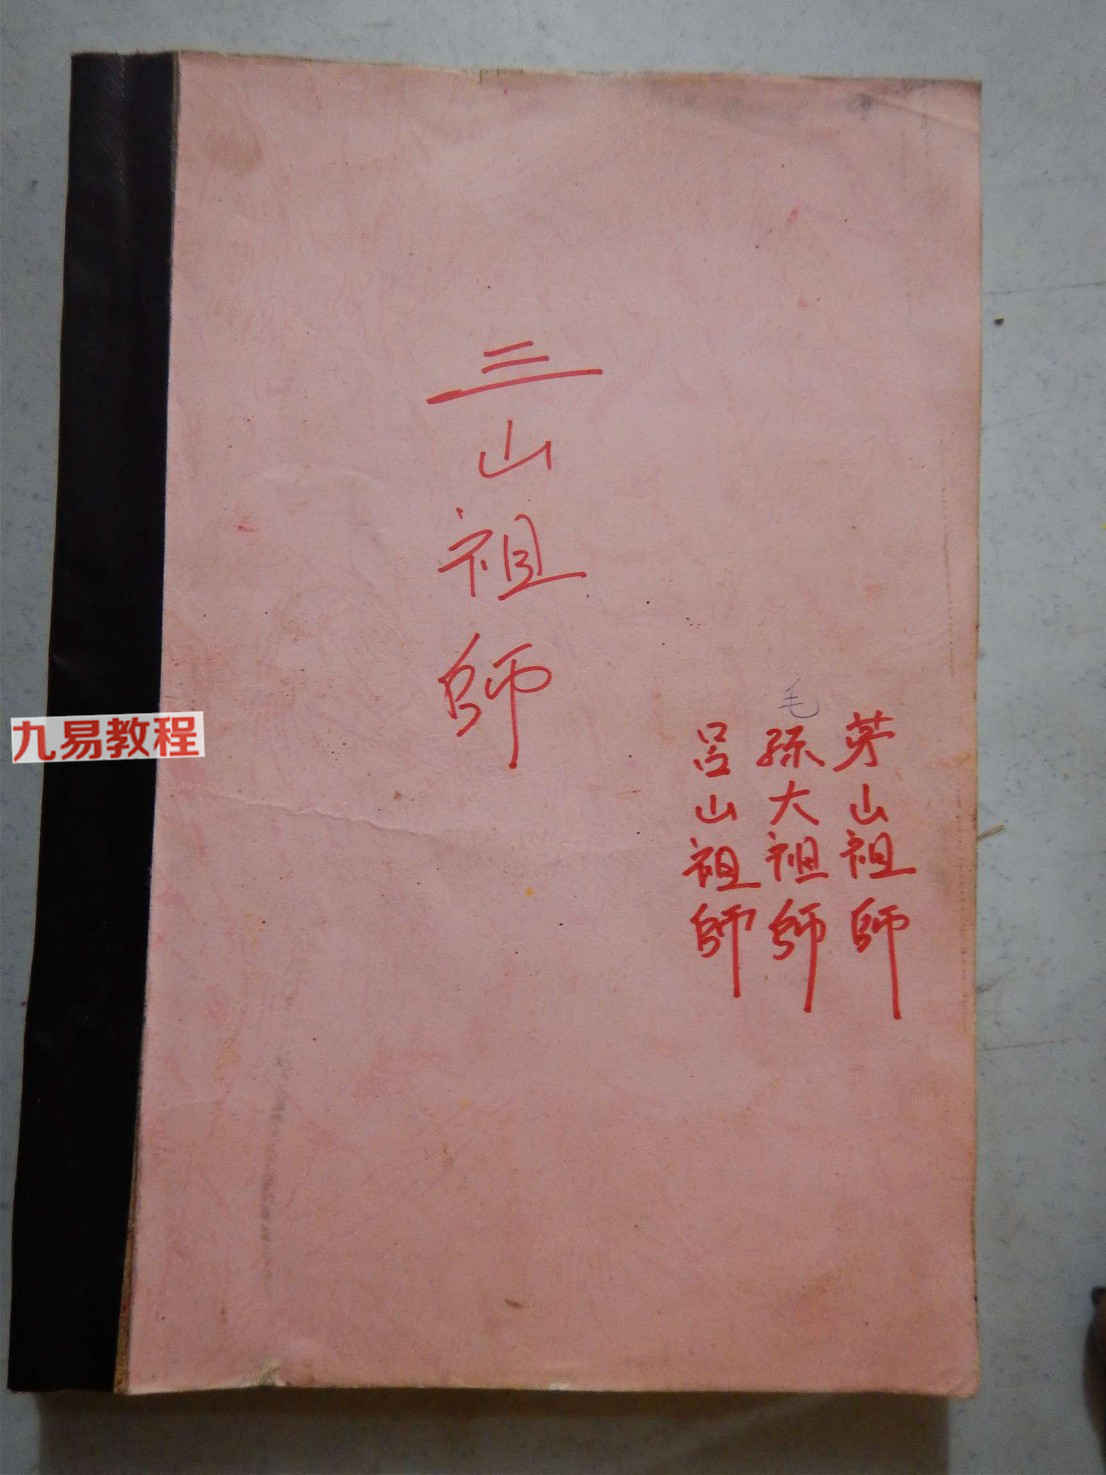 三山祖師
茅山祖師
毛
孫大祖師
呂山祖師
九易教程